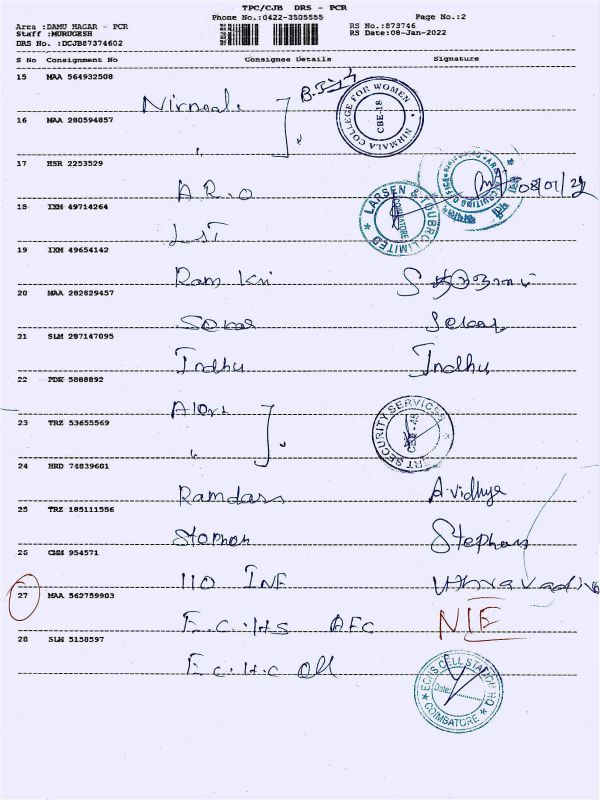 TPC/CJB DRS - PCR
Area :DAMU NAGAR - PCR Phone No.:0422-3505555 Page No.:2
Staff :MURUGESH RS No.:873746
DRS No. :DCJB87374602 RS Date:08-Jan-2022
S No Consignment No Consignee Details Signature
15 MAA 564932508
Nirmala
NIRMALA COLLEGE FOR WOMEN
CBE-18
16 MAA 280594857
"
17 HSR 2253529
A.R.O
08/01/22
18 IXM 49714264
L&T
LARSEN & TOUBRO LIMITED
COIMBATORE
19 IXM 49654142
Ram Kri
20 MAA 282829457
Sekar Sekar
21 SLM 287147095
Indhu Indhu
22 PDK 5888892
Alert
SECURITY SERVICES
CBE-45
23 TRZ 53655569
"
24 HRD 74839601
Ramdass A.vidhya
25 TRZ 185111556
Stephen Stephen
26 CHM 954571
110 INF
27 MAA 562759903
E.C.HS AFC NIE
28 SLM 5158597
E.C.H.C
ECHS CELL STATION HQ
Date:
COIMBATORE